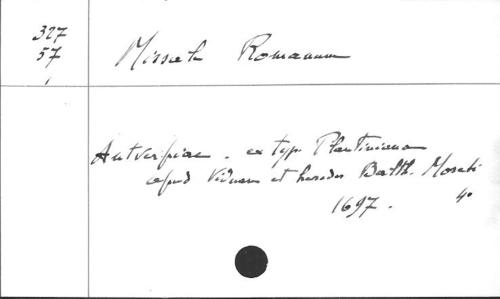 327
57
Missale Romanum
Antverpiae. ex typ. Plantiniana
apud Viduam et heredes Balth. Moreti
1697. 4º